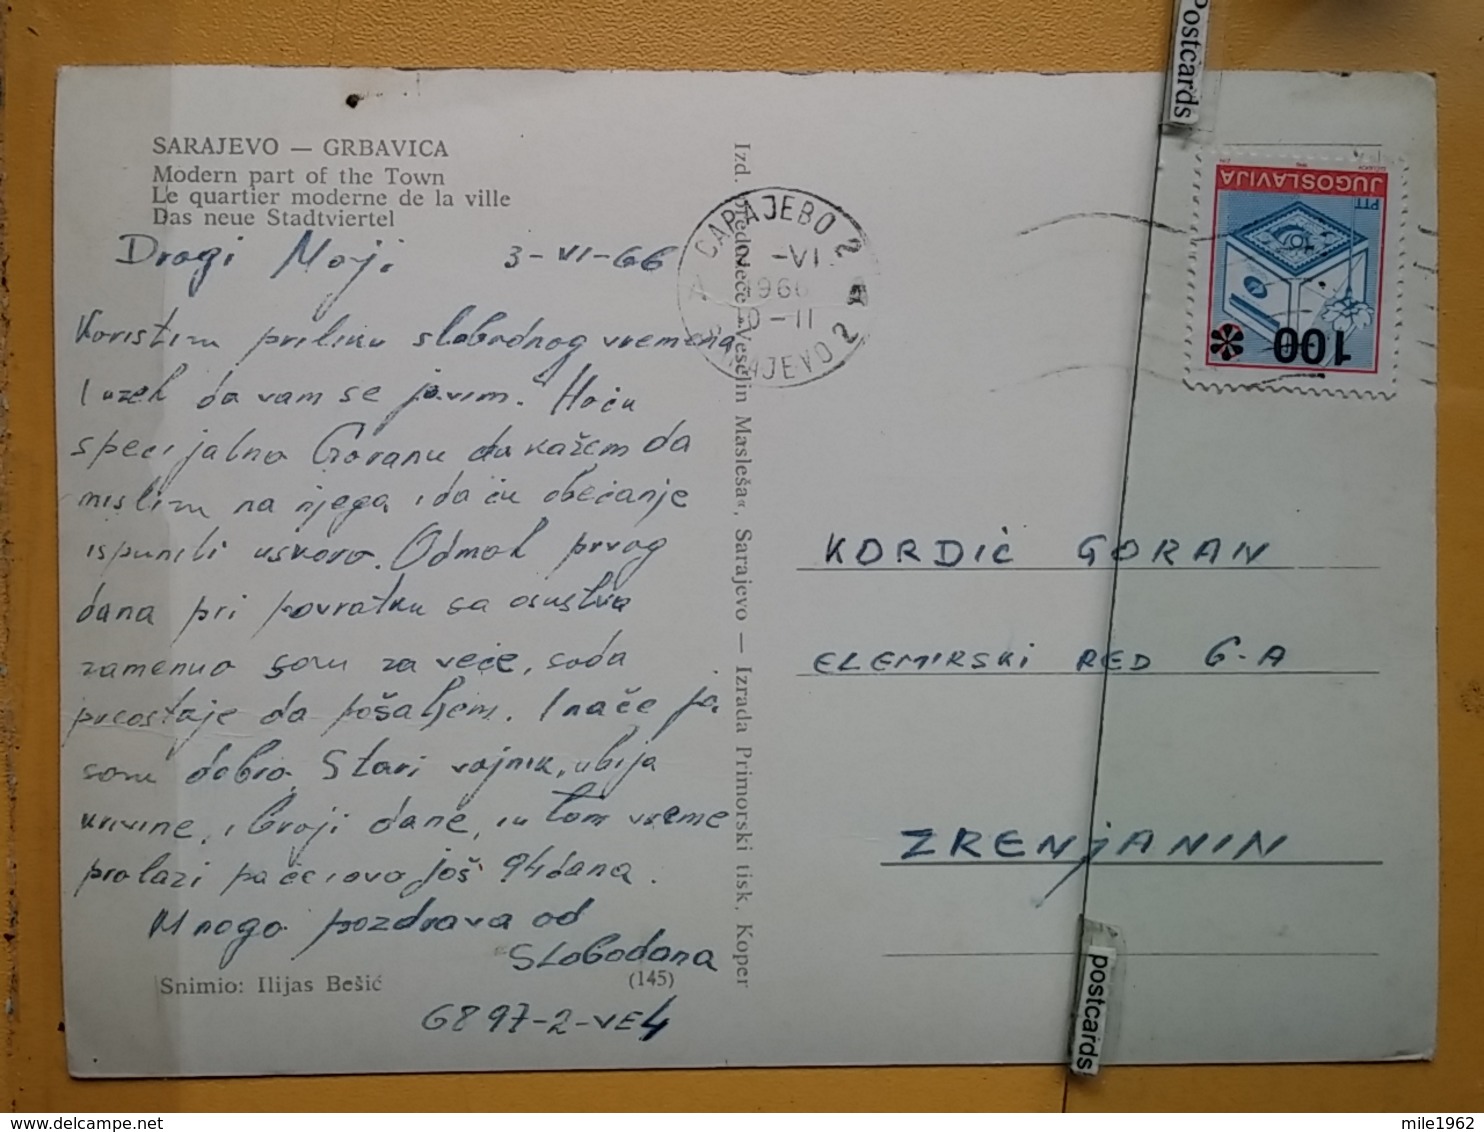 SARAJEVO — GRBAVICA
Modern part of the Town
Le quartier moderne de la ville
Das neue Stadtviertel
Dragi Moji 3-VI-66
Koristim priliku slobodnog vremena
i uzeh da vam se javim. Hoću
specijalno Goranu da kažem da
mislim na njega i da ću obećanje
ispuniti uskoro. Odmah prvog
dana pri povratku sa osustva
zamenuo sam za veće, sada
preostaje da pošaljem. Inače ja
sam dobro. Stari vojnik, ubija
krivine, i broji dane, i u tom vreme
prolazi pa će i ovo još 94 dana.
Mnogo pozdrava od
Slobodana
Snimio: Ilijas Bešić
(145)
6897-2-VE4
Izd. preduzeće »Veselin Masleša«, Sarajevo — Izrada Primorski tisk, Koper
САРАЈЕВО 2
-VI
1966
-11
SARAJEVO 2
A
JUGOSLAVIJA
PTT
100
KORDIĆ GORAN
ELEMIRSKI RED 6-A
ZRENJANIN
Postcards
postcards
mile1962